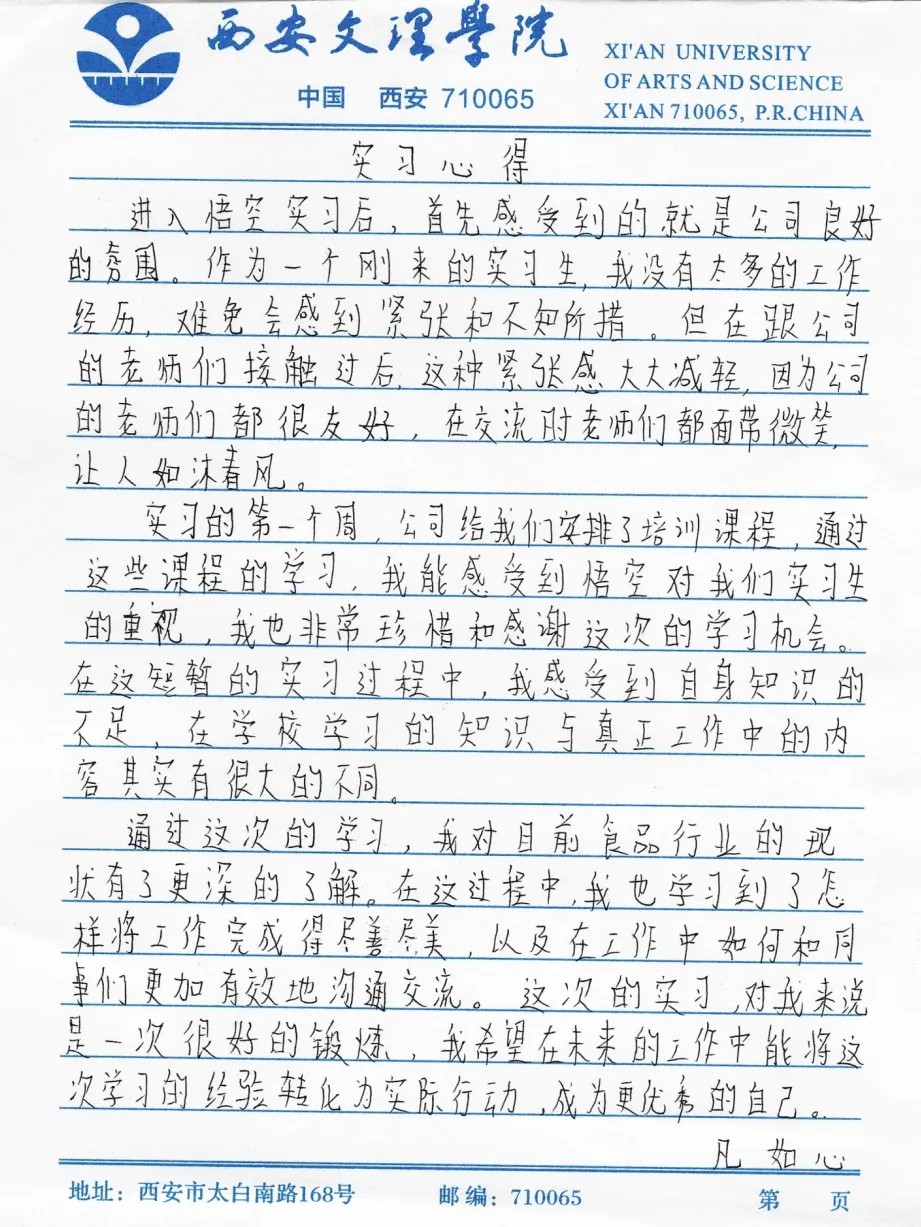 西安文理學院
中国 西安 710065
XI'AN UNIVERSITY
OF ARTS AND SCIENCE
XI'AN 710065, P.R.CHINA
实习心得
进入悟空实习后，首先感受到的就是公司良好
的氛围。作为一个刚来的实习生，我没有太多的工作
经历，难免会感到紧张和不知所措。但在跟公司
的老师们接触过后，这种紧张感大大减轻，因为公司
的老师们都很友好，在交流时老师们都面带微笑，
让人如沐春风。
实习的第一个周，公司给我们安排了培训课程，通过
这些课程的学习，我能感受到悟空对我们实习生
的重视，我也非常珍惜和感谢这次的学习机会。
在这短暂的实习过程中，我感受到自身知识的
不足，在学校学习的知识与真正工作中的内
容其实有很大的不同。
通过这次的学习，我对目前食品行业的现
状有了更深的了解。在这过程中，我也学习到了怎
样将工作完成得尽善尽美，以及在工作中如何和同
事们更加有效地沟通交流。这次的实习，对我来说
是一次很好的锻炼，我希望在未来的工作中能将这
次学习的经验转化为实际行动，成为更优秀的自己。
凡如心
地址：西安市太白南路168号 邮编：710065 第 页